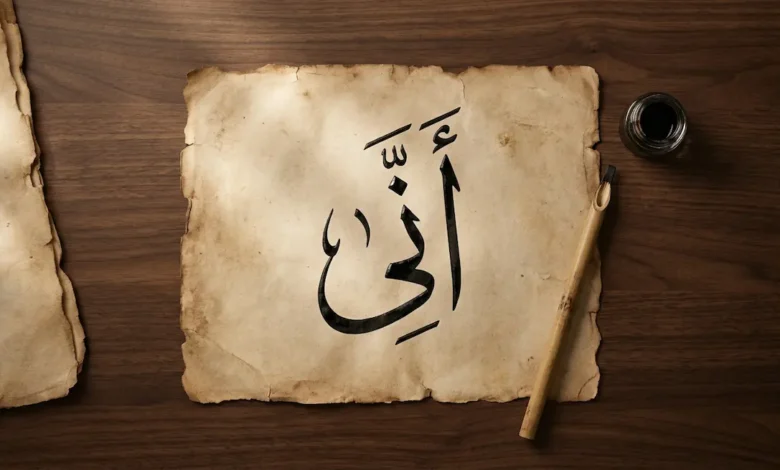 أَنَِّىٰ